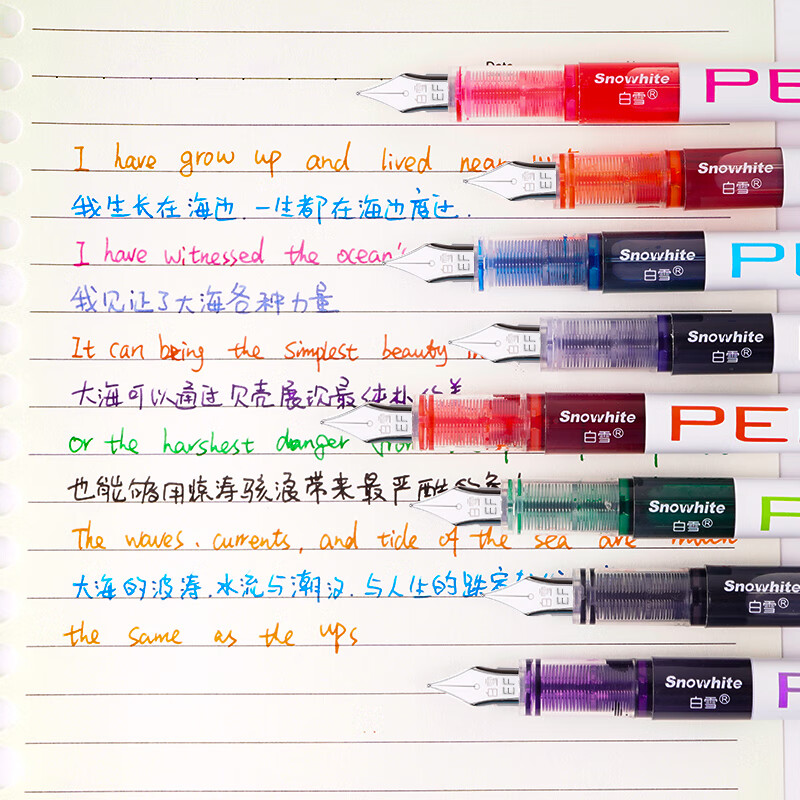 Date
Snowhite
白雪®
PE
EF
I have grow up and lived near
Snowhite
白雪®
EF
我生长在海边.一生都在海边度过.
I have witnessed the ocean's
Snowhite
白雪®
PE
EF
我见证了大海各种力量
Snowhite
白雪®
EF
It can being the simplest beauty
大海可以通过贝壳展沉最体朴的美
Snowhite
白雪®
PE
EF
or the harshest danger from
也能够用惊涛骇浪带来最严酷的危
Snowhite
白雪®
P
EF
The waves. currents, and tide of the sea are much
大海的波涛.水流与潮汐.与人生的跌宕
Snowhite
白雪®
EF
the same as the ups
Snowhite
白雪®
P
EF